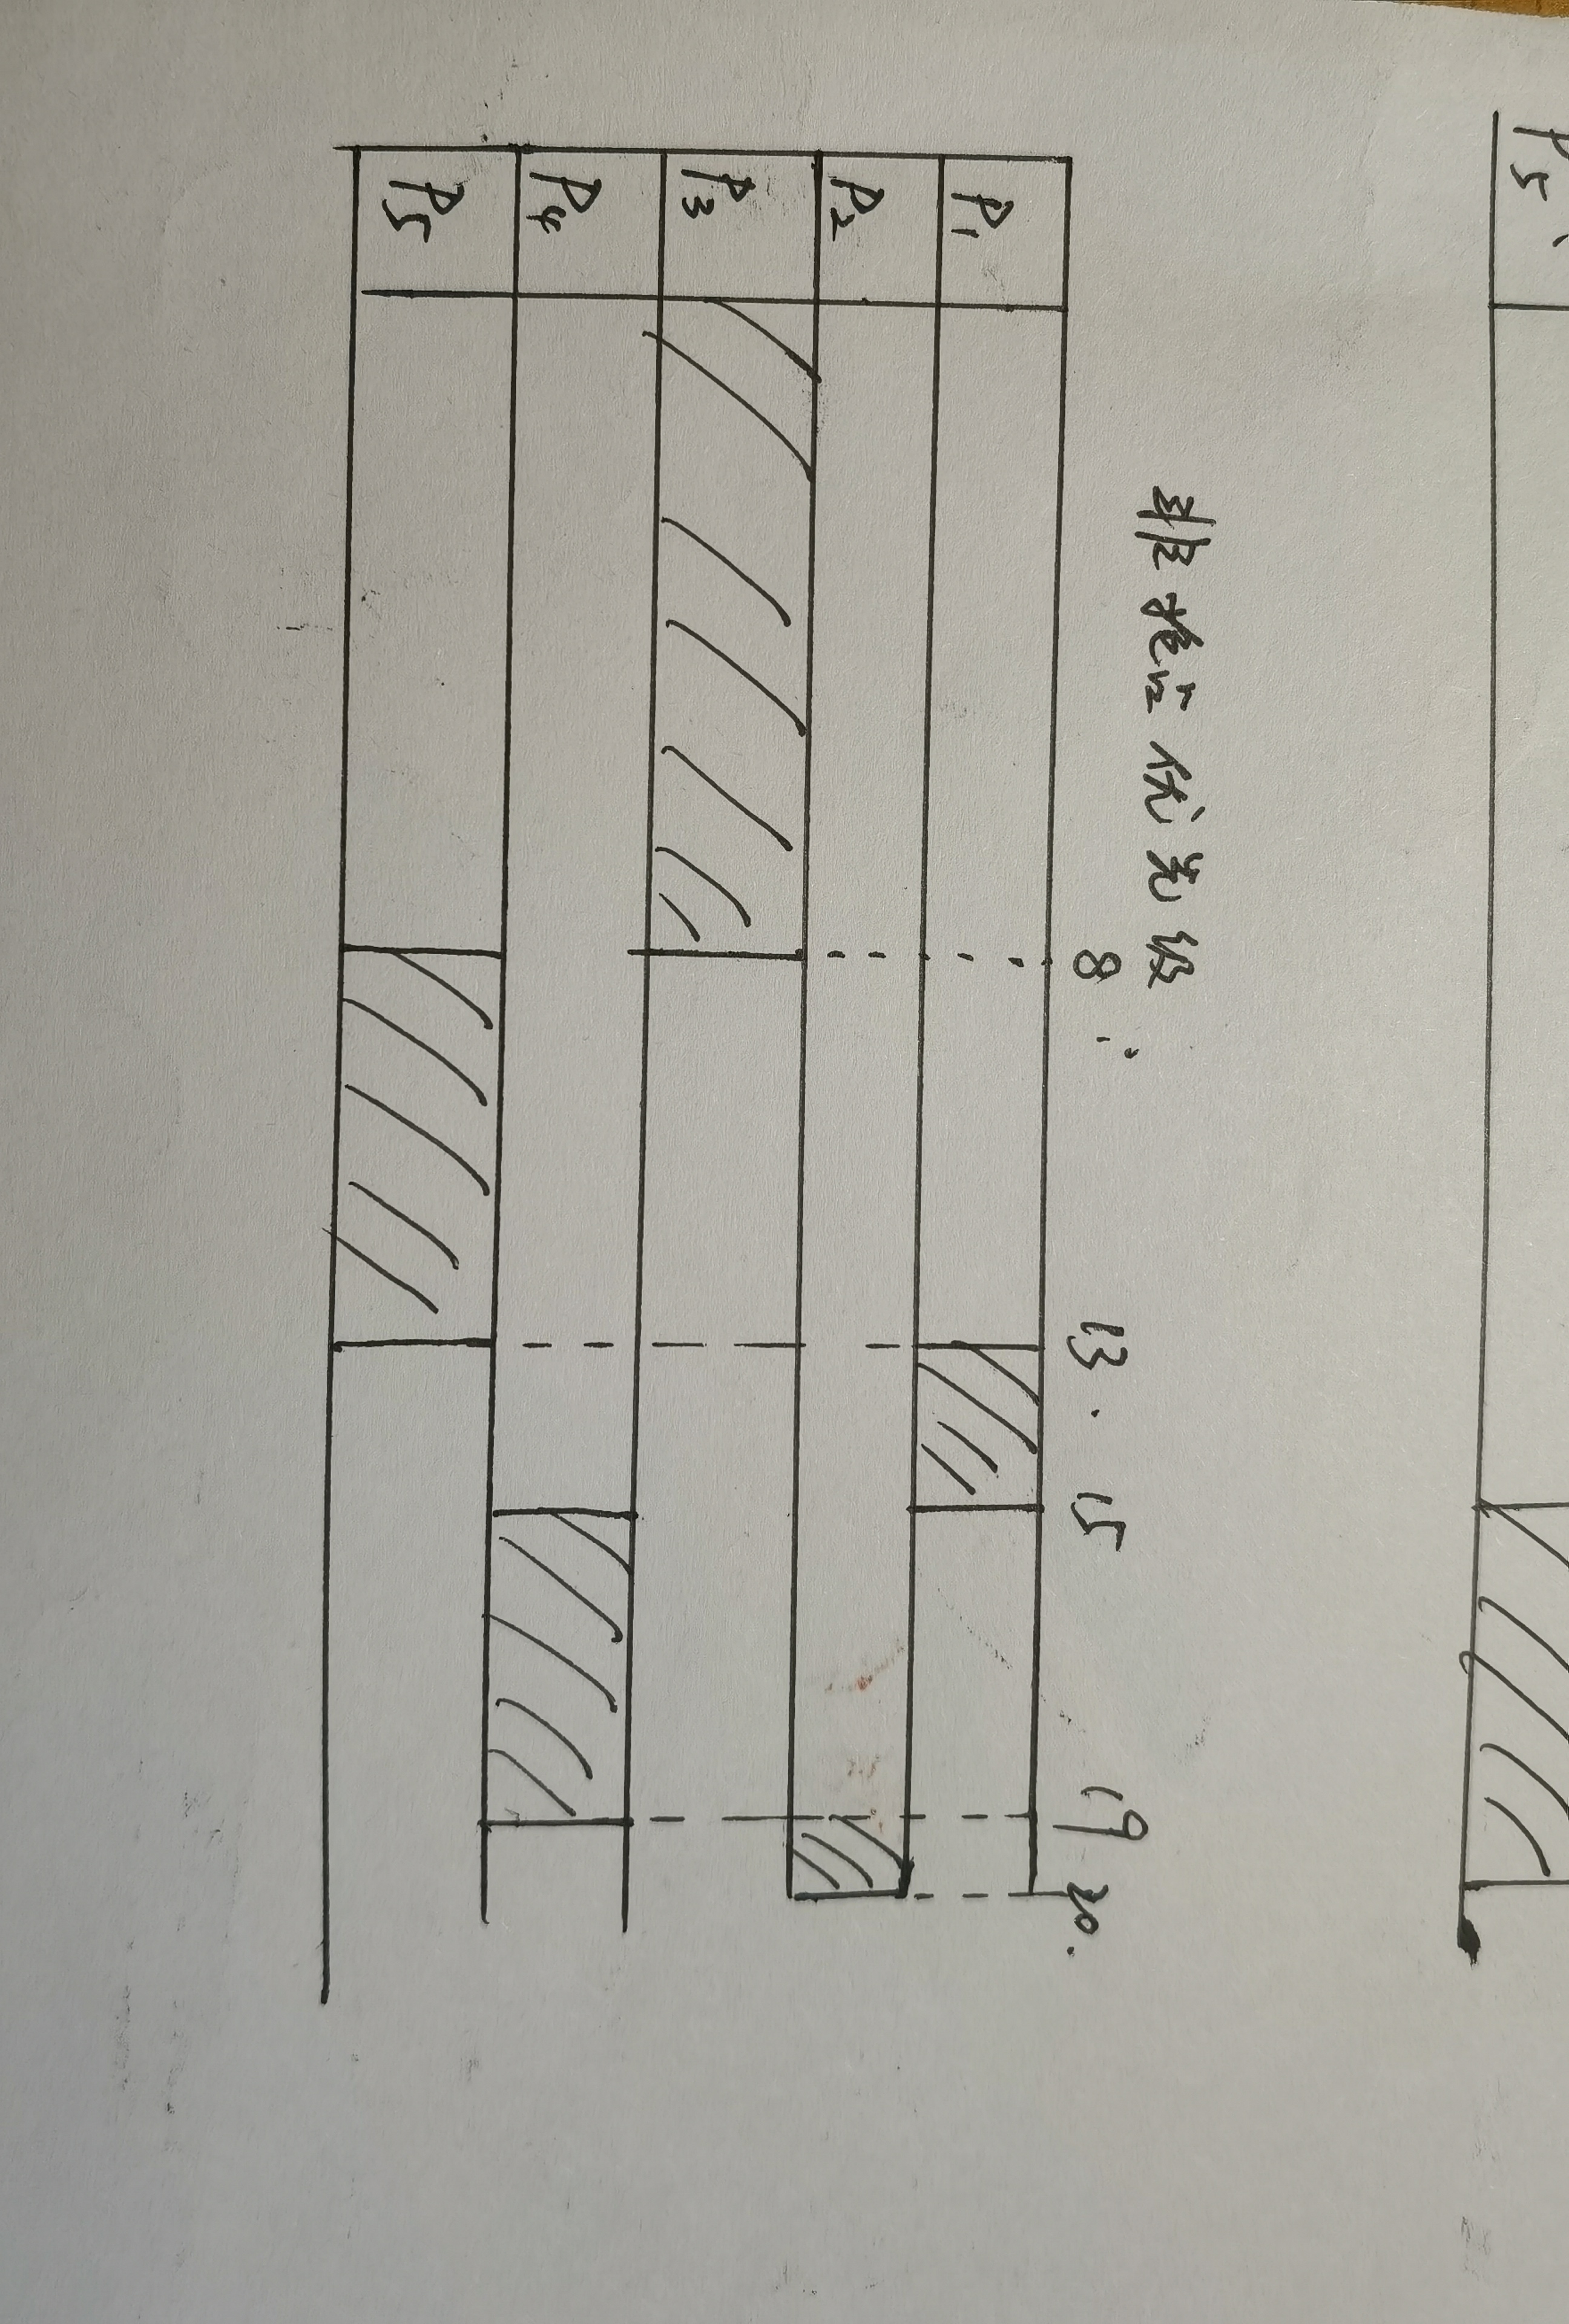 P5
非抢占优先级:
8 13. 15 19 20.
P1
P2
P3
P4
P5